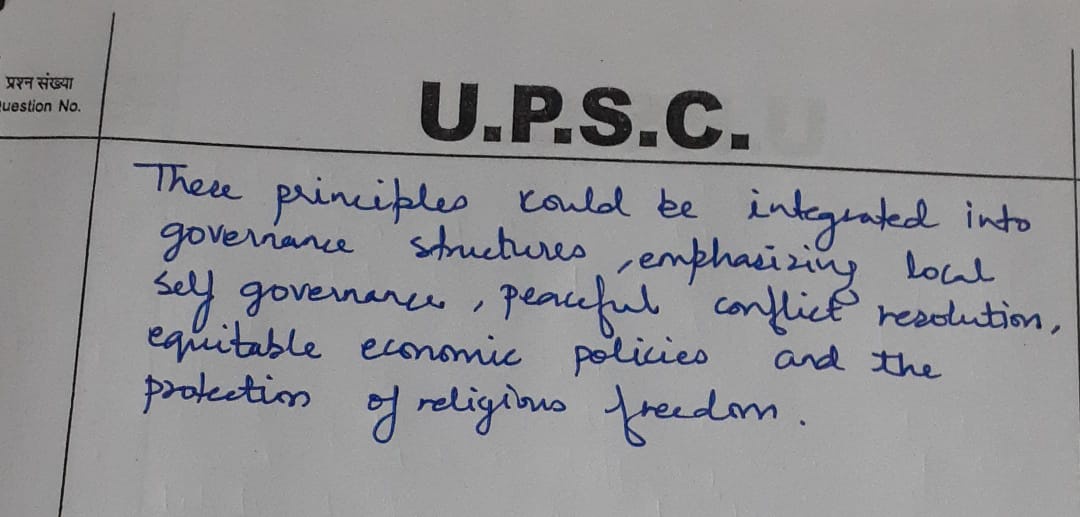 प्रश्न संख्या
uestion No.
U.P.S.C.
These principles could be integrated into
governance structures, emphasizing local
self governance, peaceful conflict resolution,
equitable economic policies and the
protection of religious freedom.